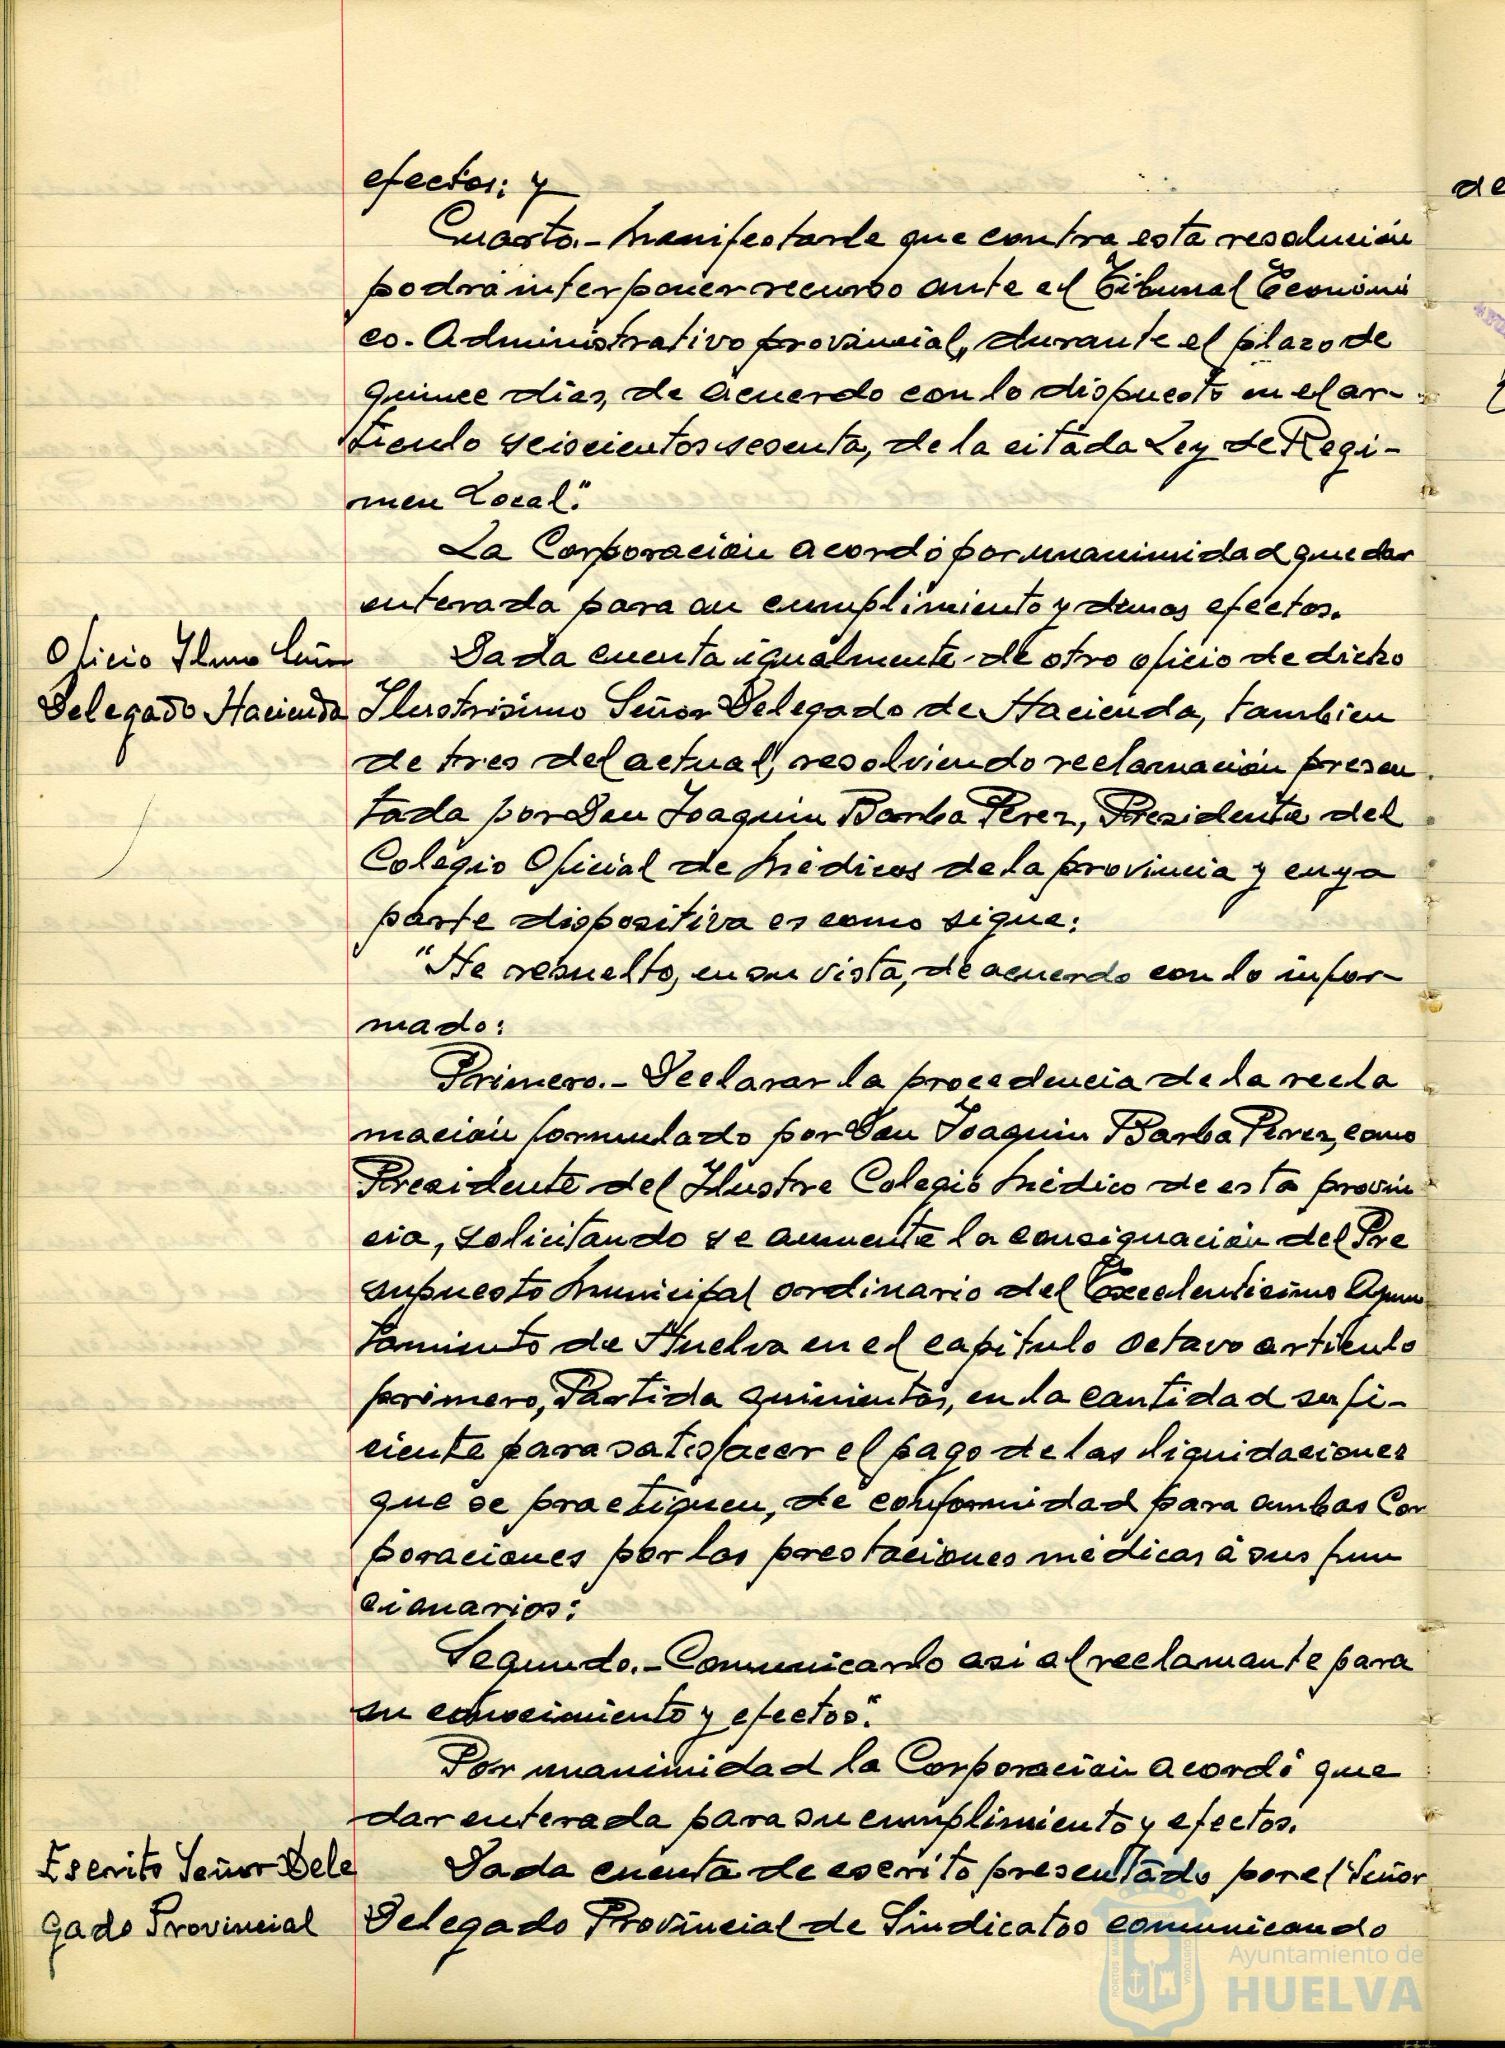 efectos; y
Cuarto.- Manifestarle que contra esta resolución
podrá interponer recurso ante el Tribunal Económi
co-Administrativo provincial, durante el plazo de
quince días, de acuerdo con lo dispuesto en el ar-
tículo seiscientos sesenta, de la citada Ley de Regi-
men Local."
La Corporación acordó por unanimidad quedar
enterada para su cumplimiento y demas efectos.
Oficio Ilmo Señor
Delegado Hacienda
Dada cuenta igualmente de otro oficio de dicho
Ilustrisimo Señor Delegado de Hacienda, tambien
de tres del actual, resolviendo reclamación presen
tada por Don Joaquin Barba Perez, Presidente del
Colegio Oficial de Médicos de la provincia y cuya
parte dispositiva es como sigue:
"He resuelto, en su vista, de acuerdo con lo infor-
mado:
Primero.- Declarar la procedencia de la recla
mación formulado por Don Joaquin Barba Perez, como
Presidente del Ilustre Colegio Médico de esta provin
cia, solicitando se aumente la consignación del Pre
supuesto Municipal ordinario del Excelentisimo Ayun
tamiento de Huelva en el capítulo octavo artículo
primero, Partida quinientos, en la cantidad sufi-
ciente para satisfacer el pago de las liquidaciones
que se practiquen, de conformidad para ambas Cor
poraciones por las prestaciones médicas á sus fun
cionarios:
Segundo.- Comunicarlo asi al reclamante para
su conocimiento y efectos".
Por unanimidad la Corporación acordó que
dar enterada para su cumplimiento y efectos.
Escrito Señor Dele
gado Provincial
Dada cuenta de escrito presentado por el Señor
Delegado Provincial de Sindicatos comunicando
de
Ayuntamiento de
HUELVA